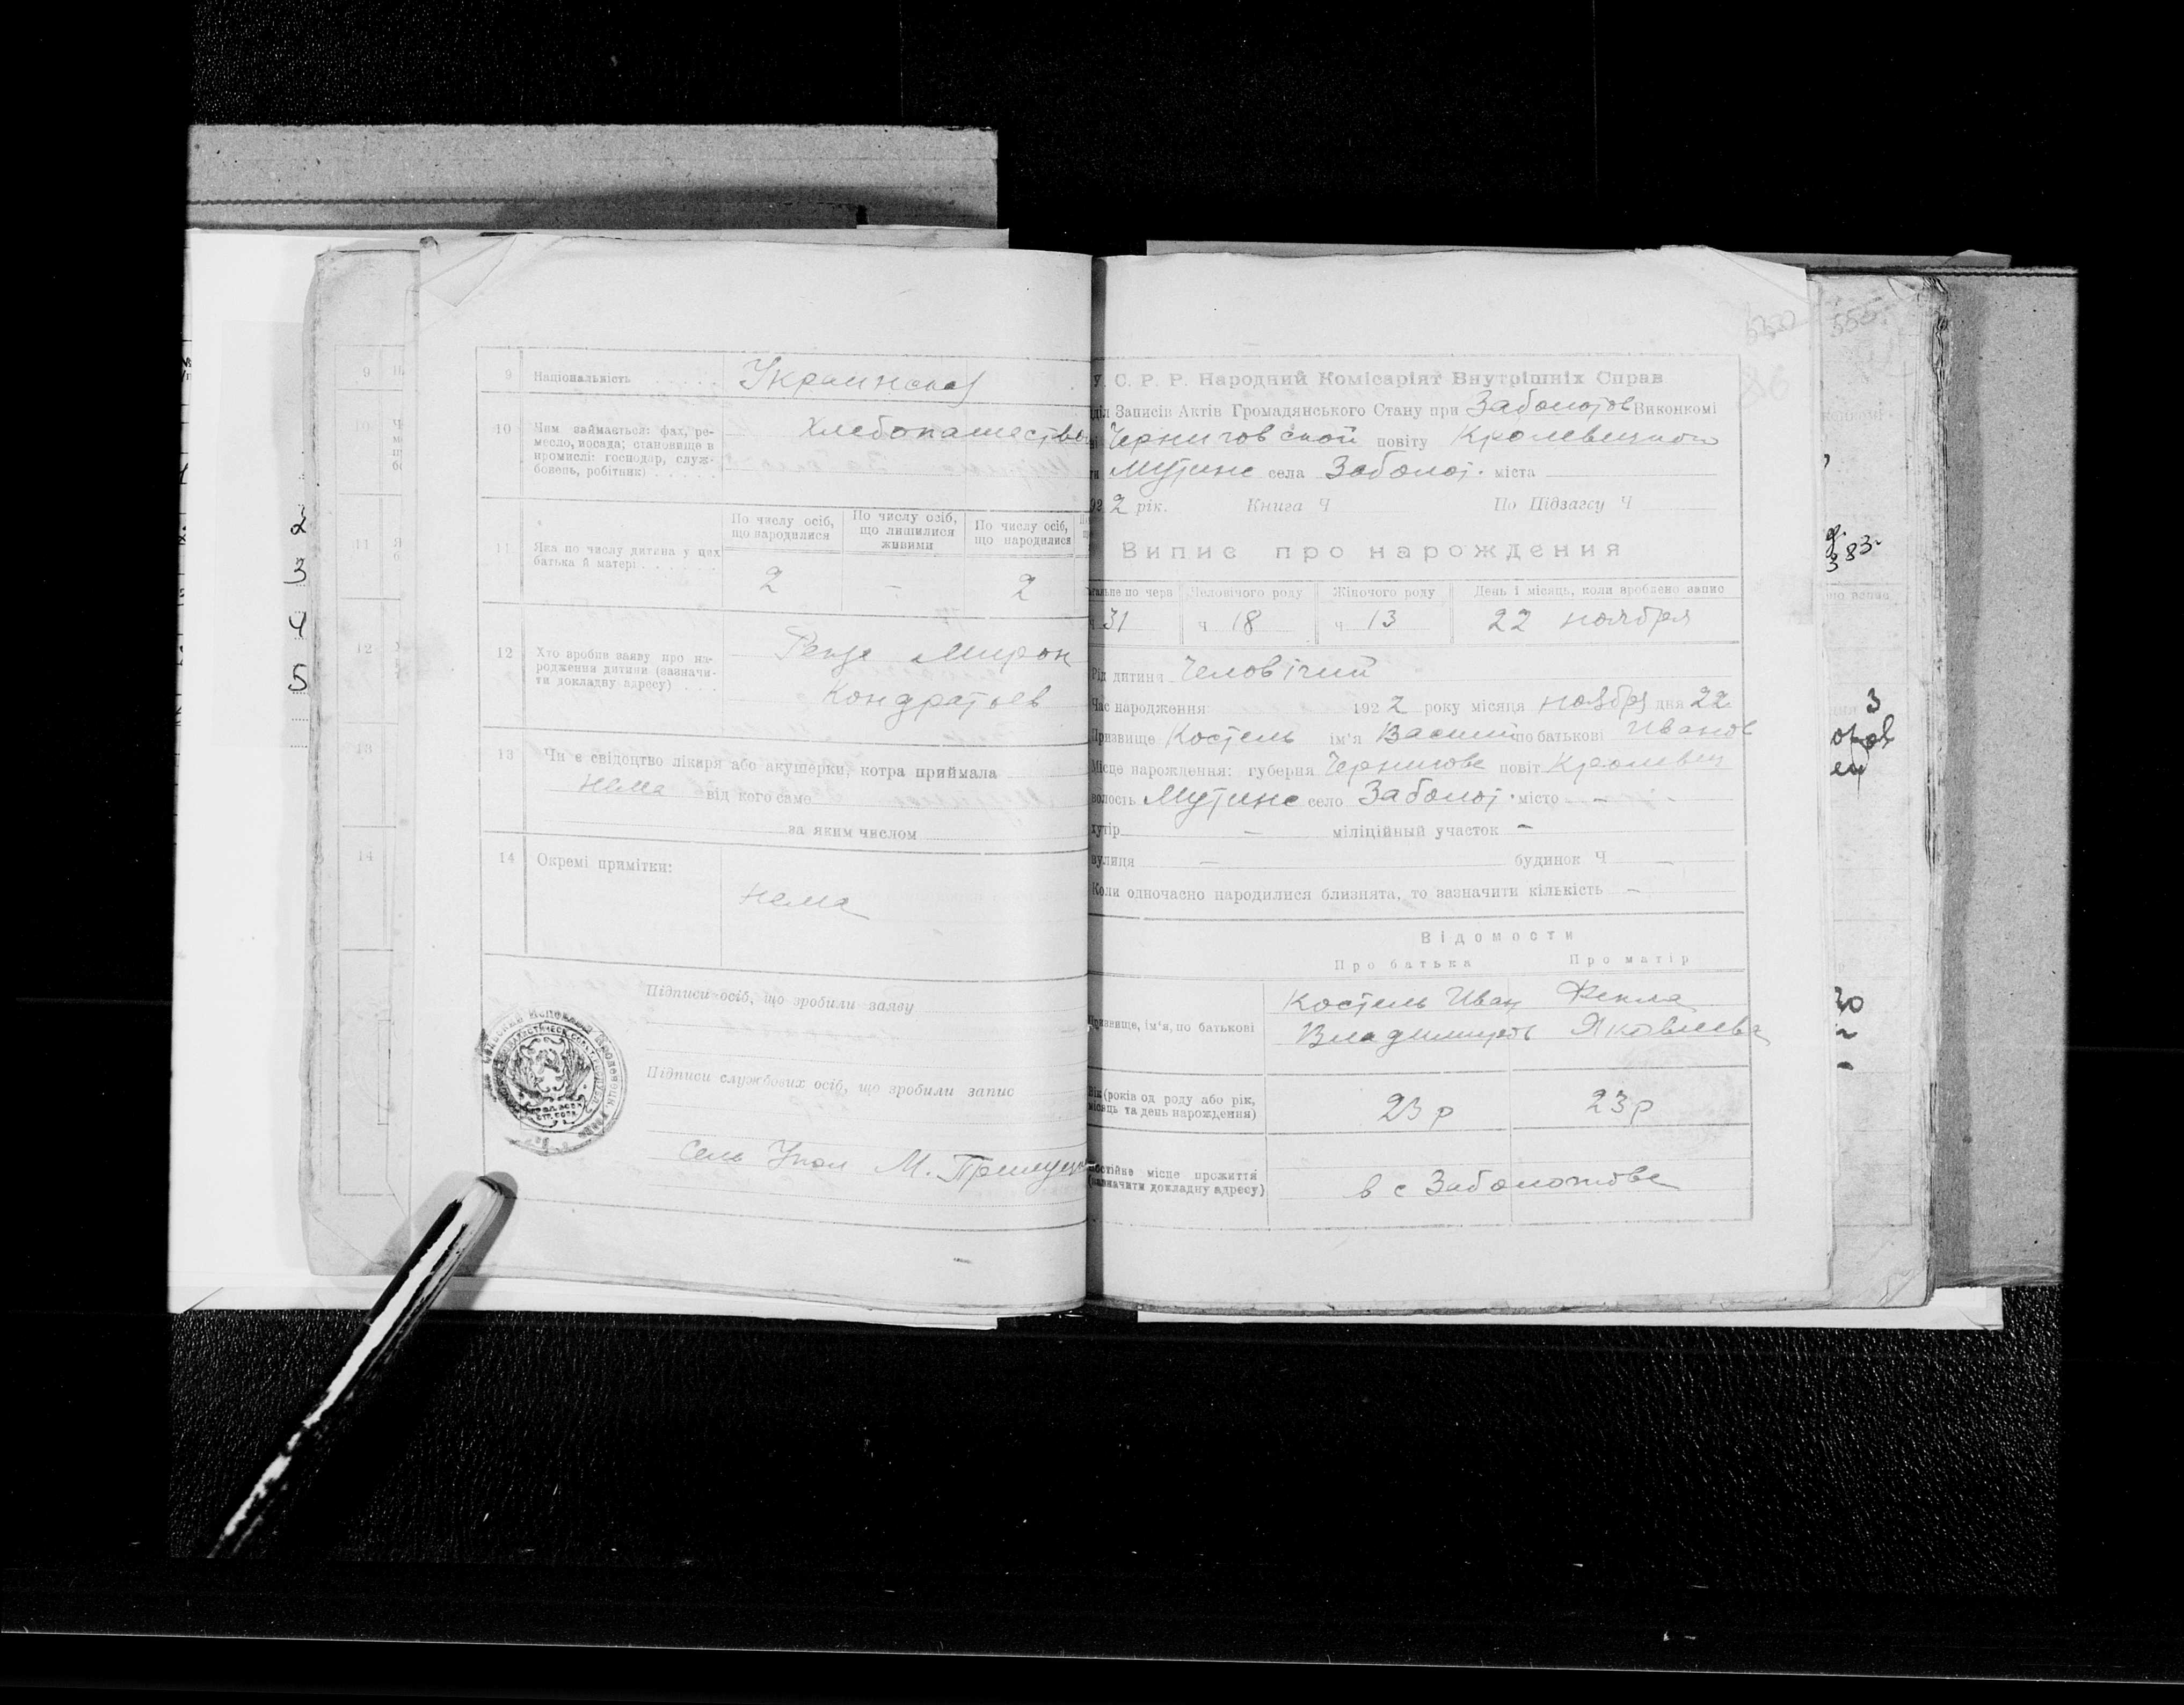 9 Національність Украинская
10 Чим займається: фах, ре-
месло, посада; становище в
промислі: господар, служ-
бовець, робітник)
Хлебопашество
11 Яка по числу дитина у цих
батька й матері
По числу осіб,
що народилися
По числу осіб,
що лишилися
живими
По числу осіб,
що народилися
2 – 2
12 Хто зробив заяву про на-
родження дитини (зазначи-
ти докладну адресу)
Мирон
Кондратьев
13 Чи є свідоцтво лікаря або акушерки, котра приймала
нема від кого саме
за яким числом
14 Окремі примітки:
нема
Підписи осіб, що зробили заяву
Підписи службових осіб, що зробили запис
У. С. Р. Р. Народний Комісаріят Внутрішніх Справ
Записів Актів Громадянського Стану при Заболотов Виконкомі
Черниговской повіту Кролевецкого
Мутинс села Заболот. міста
2 рік. Книга Ч По Підзагсу Ч
Випис про нарождения
по чера Человічого роду Жіночого роду День і місяць, коли зроблено запис
31 ч 18 ч 13 22 ноября
Рід дитини Человічий
Час народження 1922 року місяця ноября дня 22
Призвище Костель ім'я Василий по батькові Иванов
Місце нарождения: губерня Чернигове повіт Кролевец
волость Мутинс село Заболот. місто –
хутір – міліційный участок –
вулиця – будинок Ч –
Коли одночасно народилися близнята, то зазначити кількість –
Відомости
Про батька Про матір
Призвище, ім'я, по батькові
Костель Иван Фекла
Владимиров Яковлева
Вік (років од роду або рік,
місяць та день нарождення)
23 р 23 р
Постійне місце прожиття
(зазначити докладну адресу)
в с Заболотове